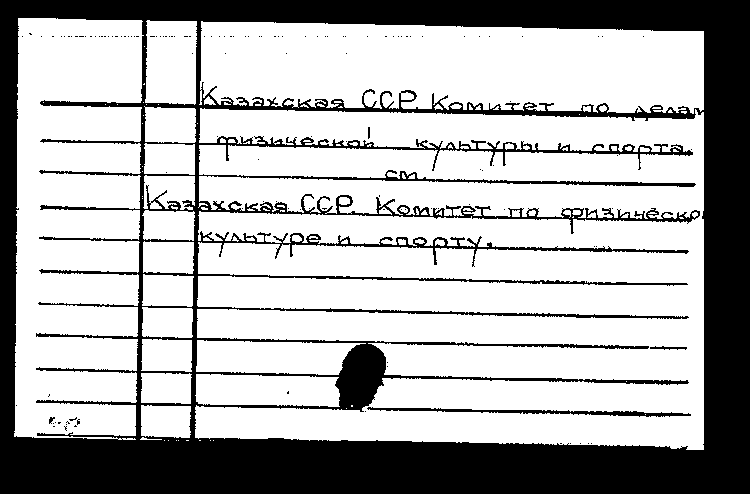 Казахская ССР. Комитет по делам
физической культуры и спорта.
см.
Казахская ССР. Комитет по физическо
культуре и спорту.